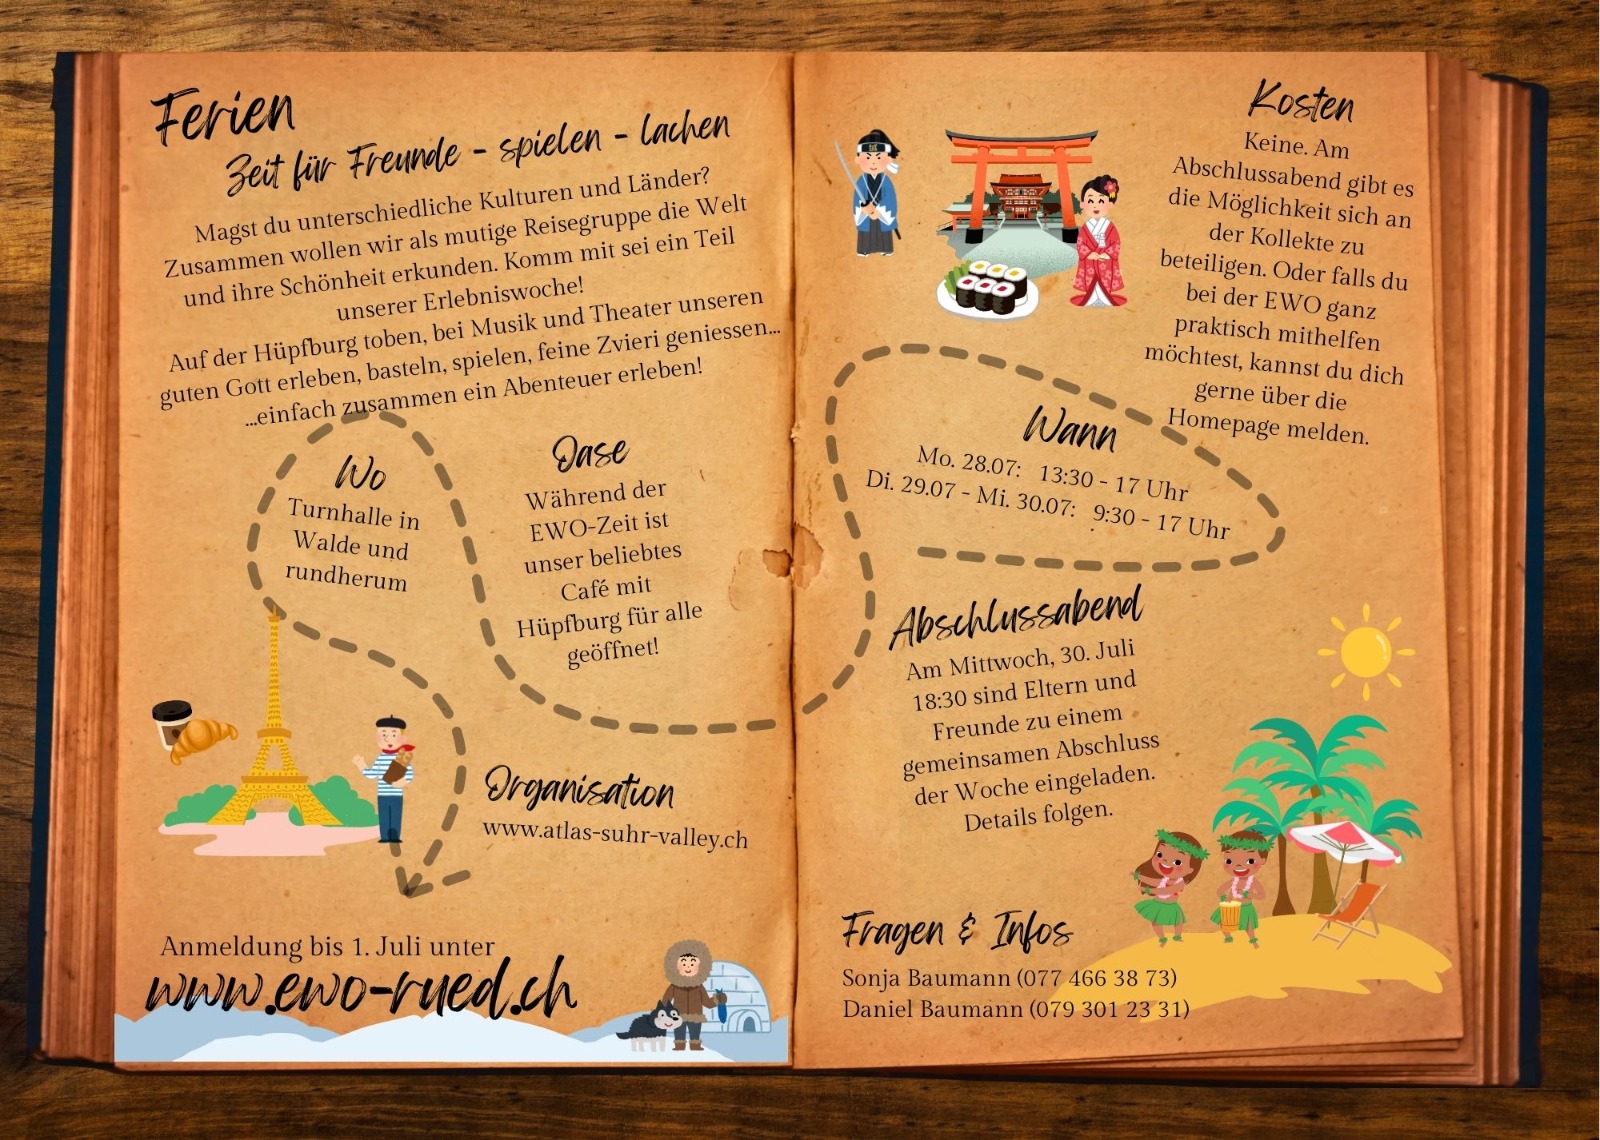 Ferien
Zeit für Freunde - spielen - lachen
Magst du unterschiedliche Kulturen und Länder?
Zusammen wollen wir als mutige Reisegruppe die Welt
und ihre Schönheit erkunden. Komm mit sei ein Teil
unserer Erlebniswoche!
Auf der Hüpfburg toben, bei Musik und Theater unseren
guten Gott erleben, basteln, spielen, feine Zvieri geniessen...
...einfach zusammen ein Abenteuer erleben!
Wo
Turnhalle in
Walde und
rundherum
Oase
Während der
EWO-Zeit ist
unser beliebtes
Café mit
Hüpfburg für alle
geöffnet!
Organisation
www.atlas-suhr-valley.ch
Anmeldung bis 1. Juli unter
www.ewo-rued.ch
Kosten
Keine. Am
Abschlussabend gibt es
die Möglichkeit sich an
der Kollekte zu
beteiligen. Oder falls du
bei der EWO ganz
praktisch mithelfen
möchtest, kannst du dich
gerne über die
Homepage melden.
Wann
Mo. 28.07: 13:30 - 17 Uhr
Di. 29.07 - Mi. 30.07: 9:30 - 17 Uhr
Abschlussabend
Am Mittwoch, 30. Juli
18:30 sind Eltern und
Freunde zu einem
gemeinsamen Abschluss
der Woche eingeladen.
Details folgen.
Fragen & Infos
Sonja Baumann (077 466 38 73)
Daniel Baumann (079 301 23 31)